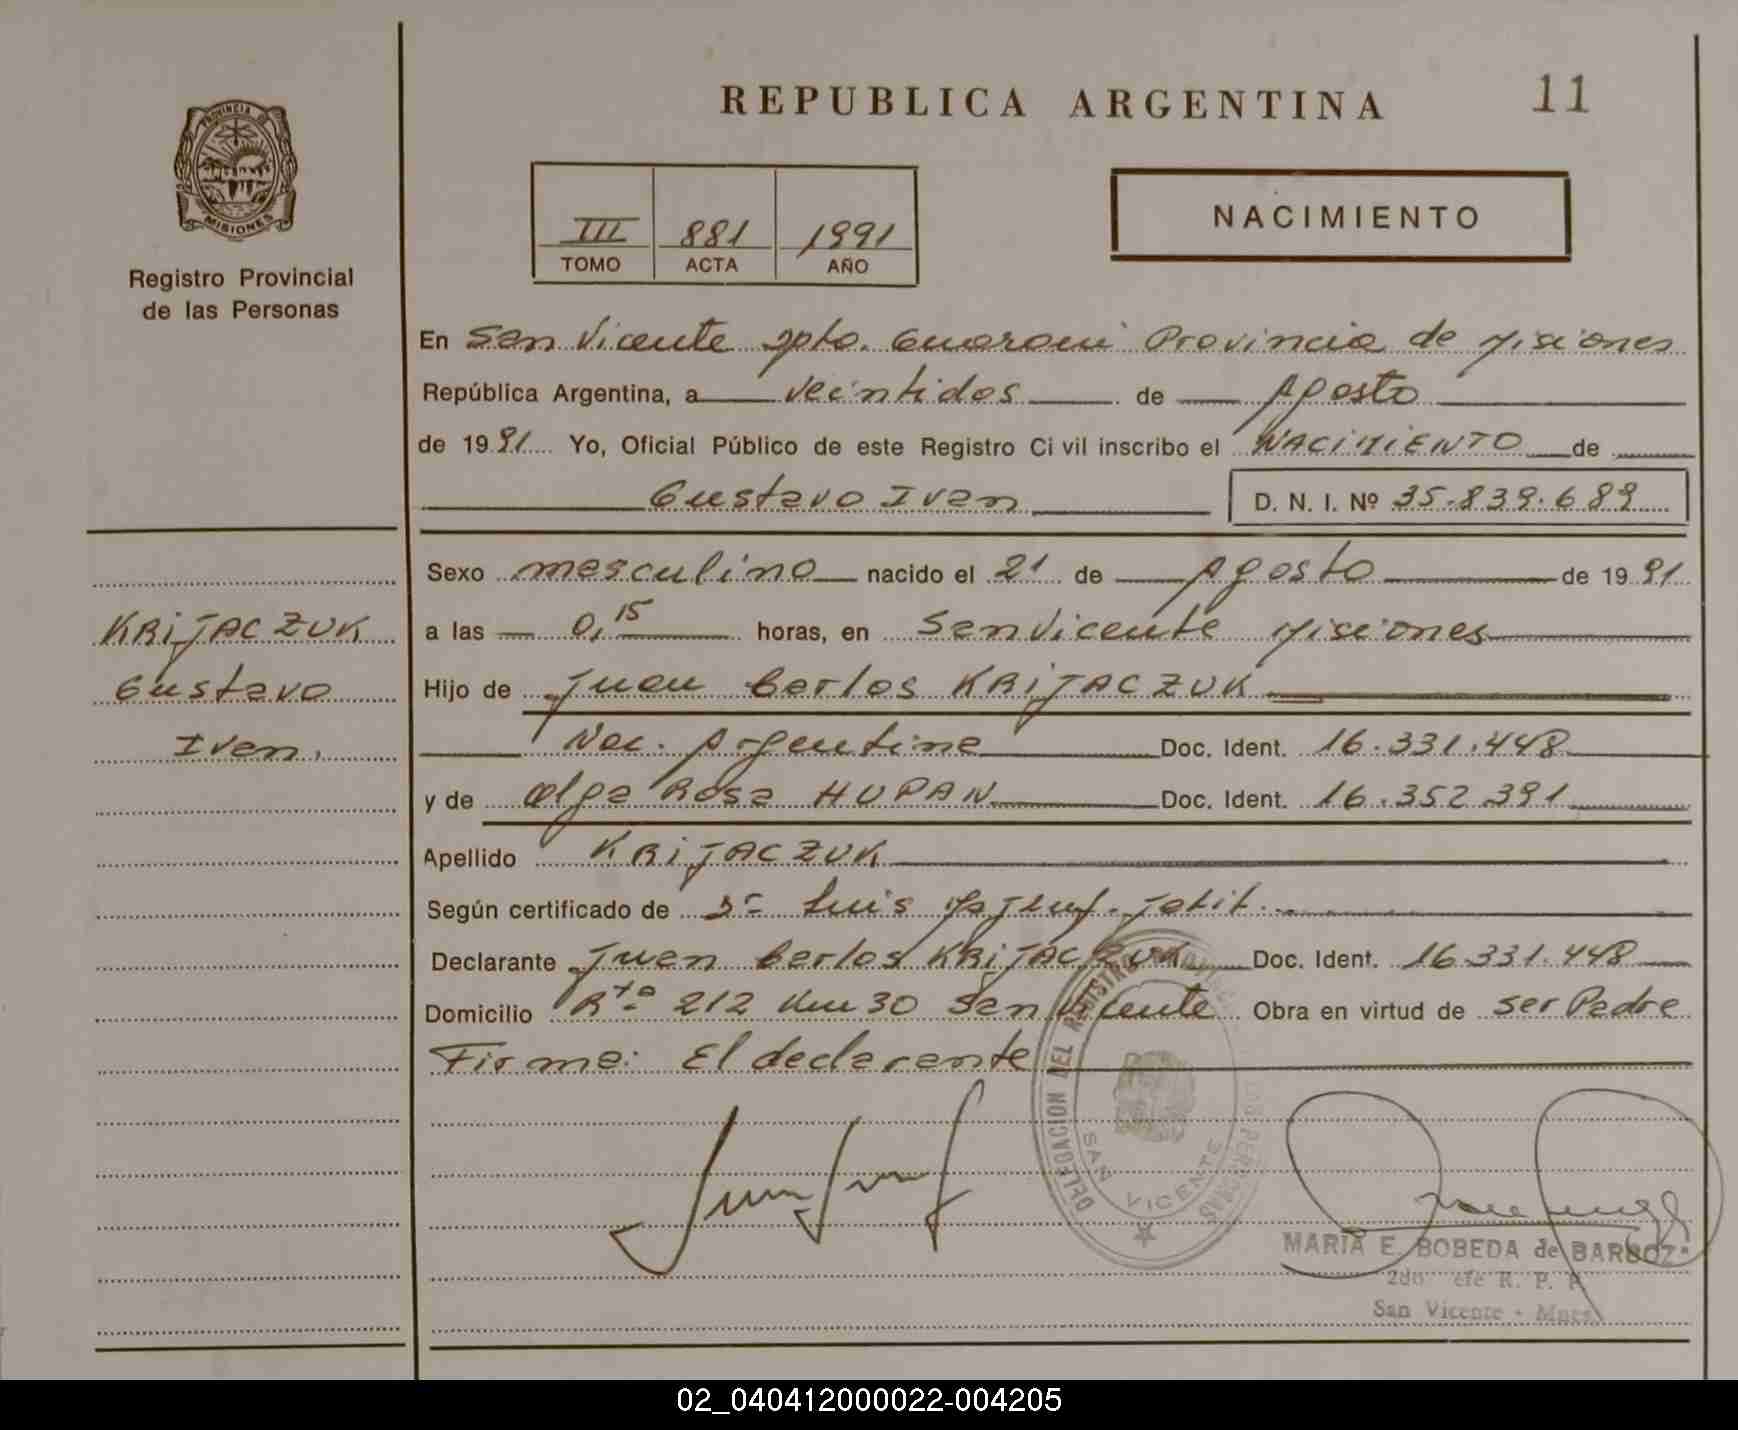 REPUBLICA ARGENTINA
11
PROVINCIA DE
MISIONES
Registro Provincial
de las Personas
III 881 1991
TOMO ACTA AÑO
NACIMIENTO
En San Vicente Dpto. Guarani Provincia de Misiones
República Argentina, a veintidos de Agosto
de 1991 Yo, Oficial Público de este Registro Civil inscribo el NACIMIENTO de
Gustavo Ivan D. N. I. Nº 35.839.689
Sexo masculino nacido el 21 de Agosto de 1991
a las 0,15 horas, en San Vicente Misiones
Hijo de Juan Carlos KRIJACZUK
Nac. Argentina Doc. Ident. 16.331.448
y de Olga Rosa HUPAN Doc. Ident. 16.352.391
Apellido KRIJACZUK
Según certificado de Dr Luis
Declarante Juan Carlos KRIJACZUK Doc. Ident. 16.331.448
Domicilio Rta 212 Km 30 San Vicente Obra en virtud de ser Padre
Firma: El declarante
KRIJACZUK
Gustavo
Ivan.
DELEGACION DEL REGISTRO PERSONAS
SAN VICENTE
MARIA E. BOBEDA de BARBOZA
2do efe R. P. P.
San Vicente - Mnes.
02_040412000022-004205